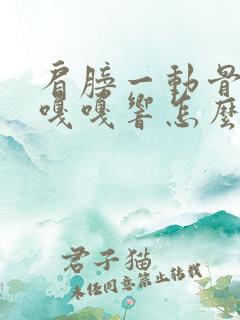 肩膀一動骨
嘎嘎響怎麼
君子猫
未任同意禁止转载